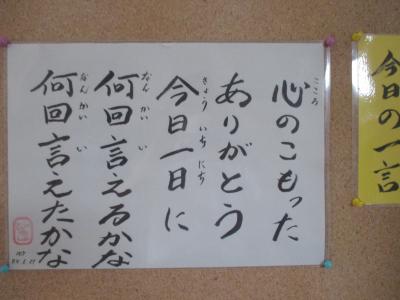 今日の一言
心のこもった
こころ
ありがとう
今日一日に
きょう いちにち
何回言えるかな
なんかい い
何回言えたかな
なんかい い